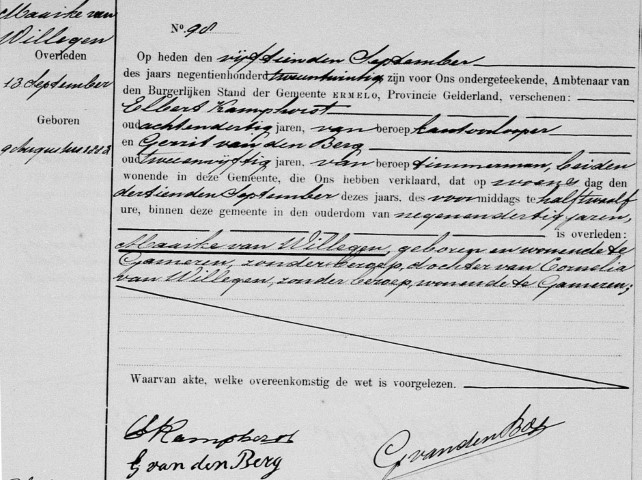 Maaike van
Willegen
Overleden
13 September
Geboren
9 Augustus 1883
No. 98
Op heden den vijftienden September
des jaars negentienhonderd tweeentwintig, zijn voor Ons ondergeteekende, Ambtenaar van
den Burgerlijken Stand der Gemeente ERMELO, Provincie Gelderland, verschenen:
Elbert Kamphorst
oud achtendertig jaren, van beroep kantoorlooper
en Gerrit van den Berg
oud tweeenvijftig jaren, van beroep timmerman, beiden
wonende in deze Gemeente, die Ons hebben verklaard, dat op woensdag den
dertienden September dezes jaars, des voormiddags te half twaalf
ure, binnen deze gemeente in den ouderdom van negenendertig jaren,
is overleden:
Maaike van Willegen, geboren en wonende te
Gameren, zonder beroep, dochter van Cornelia
van Willegen, zonder beroep, wonende te Gameren;
Waarvan akte, welke overeenkomstig de wet is voorgelezen.
E Kamphorst
G van den Berg
G. van den